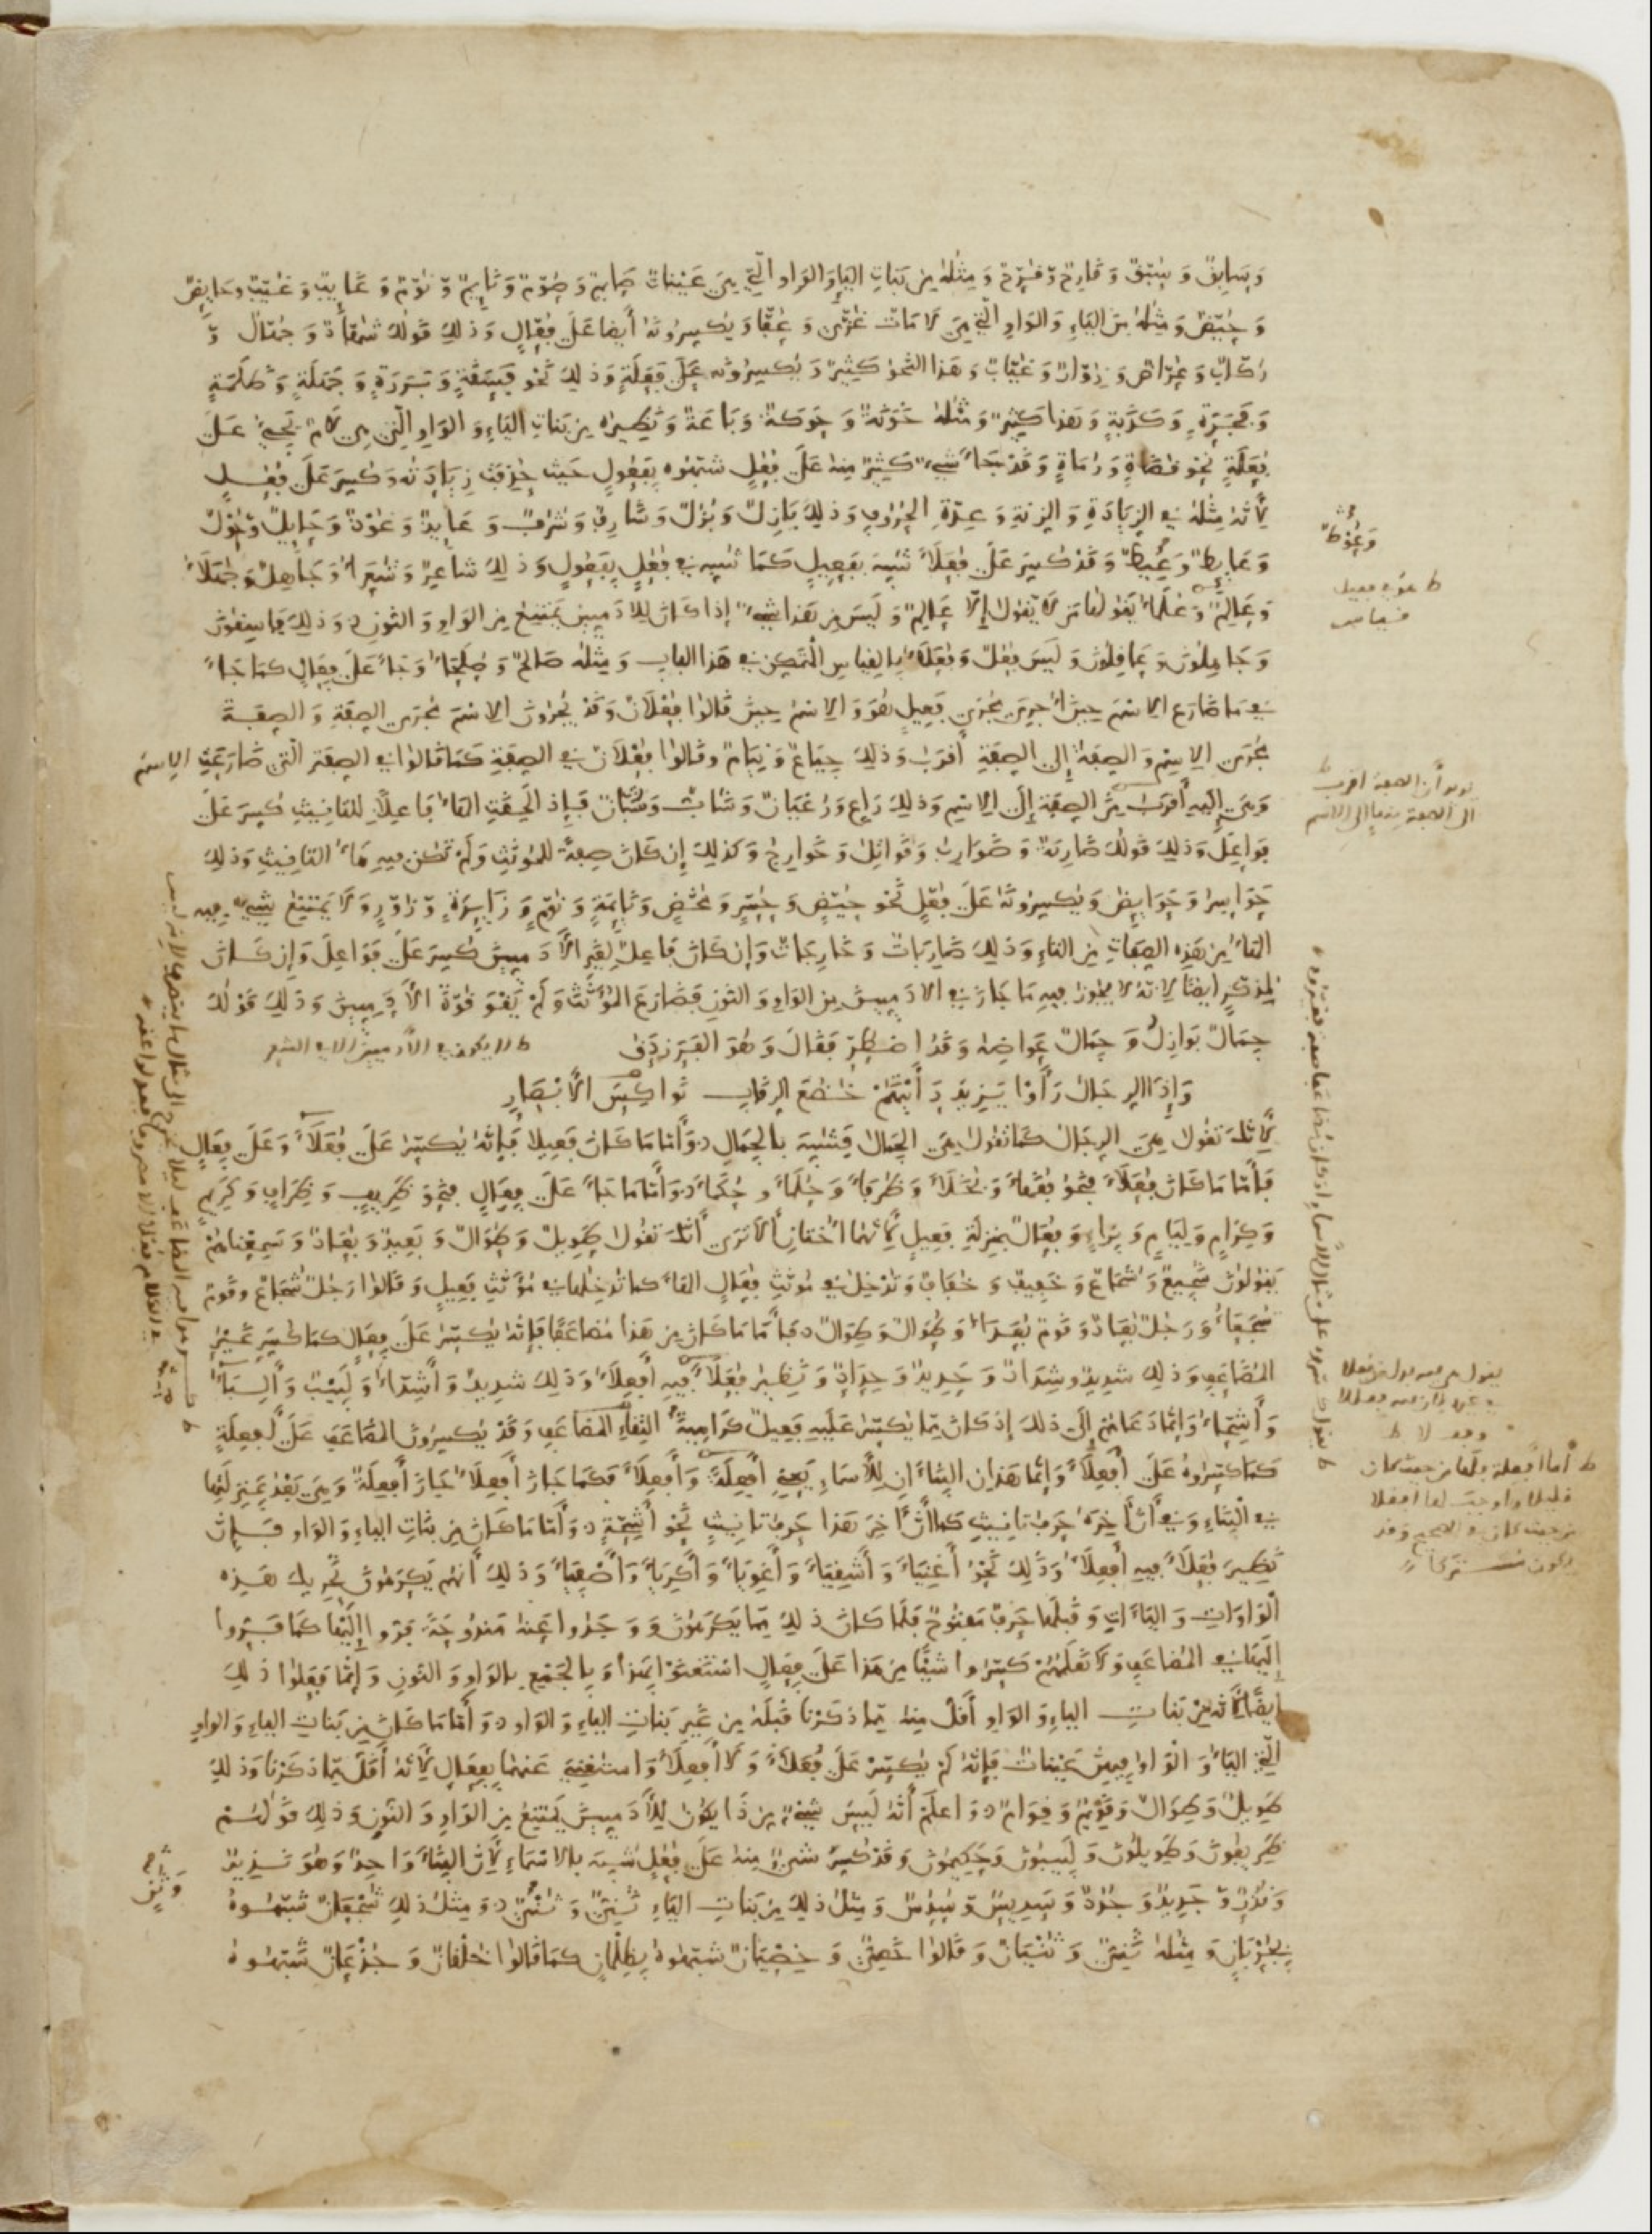 وَسَابِقٌ وَسُبَّقٌ وَقَارِحٌ وَقُرَّحٌ وَمِثْلُهُ مِن بَنَاتِ اليَاءِ وَالوَاوِ الَّتِي هِيَ عَيْنَاتٌ صَائِمٌ وَصُوَّمٌ وَنَائِمٌ وَنُوَّمٌ وَغَائِبٌ وَغُيَّبٌ وحَائِضٌ
وَحُيَّضٌ وَمِثْلُهُ مِنَ اليَاءِ وَالوَاوِ الَّتِي هِيَ لَامَاتٌ غُزًّى وَعُفًّا وَيُكَسِّرُونَهُ أَيضا عَلَى فُعَّالٍ وَذلِكَ قَولُكَ شُهَّادٌ وَجُهَّالٌ وَ
رُكَّابٌ وَعُرَّاضٌ وَزُوَّارٌ وَغُيَّابٌ وَهَذا النَّحْوُ كَثِيرٌ وَيُكَسِّرُونَه عَلَى فَعَلَةٍ وَذلِكَ نَحْوُ فَسَقَةٍ وَبَرَرَةٍ وَجَهَلَةٍ وَظَلَمَةٍ
وَفَجَرَةٍ وَكَذَبَةٍ وَهَذا كَثِيرٌ وَمِثْلُهُ خَوَنَةٌ وَحَوَكَةٌ وَبَاعَةٌ وَنَظِيرُه مِن بَنَاتِ اليَاءِ وَالوَاوِ الَّتِي هِيَ لَامٌ يَجِيءُ عَلَى
فُعَلَةٍ نَحْوُ قُضَاةٍ وَرُمَاةٍ وَقَدْ جَاءَ شَيْءٌ كَثِيرٌ مِنهُ عَلَى فُعُلٍ شَبَّهُوه بِفَعُولٍ حَيْثُ حُذِفَتْ زِيَادَتُه وَكُسِّرَ عَلَى فُعُلٍ
لِأَنَّهُ مِثْلُهُ فِي الزِّيَادَةِ وَالزِّنَةِ وَعِدَّةِ الحُرُوفِ وَذلِكَ بَازِلٌ وَبُزُلٌ وَشَارِفٌ وَشُرُفٌ وَعَائِذٌ وَعُوذٌ وَحَائِلٌ وَحُولٌ
وَعَائِطٌ وَعِيطٌ وَقَدْ كُسِّرَ عَلَى فُعَلَاءَ شُبِّهَ بِفَعِيلٍ كَمَا شُبِّه فِي فُعُلٍ بِفَعُولٍ وَذلِكَ شَاعِرٌ وَشُعَرَاءُ وَجَاهِلٌ وَجُهَلَاءُ
وَعَالِمٌ وَعُلَمَاءُ يَقُولُهَا مَن لَا يَقُولُ إِلَّا عَالِمٌ وَلَيسَ مِن هَذا شَيْءٌ إِذا كَانَ لِلآدَمِيِّينَ يَمْتَنِعُ مِنَ الوَاوِ وَالنُّونِ وَذلِكَ فَاسِقُونَ
وَجَاهِلُونَ وَعَاقِلُونَ وَلَيسَ فُعُلٌ وَفُعَلَاءُ بِالقِيَاسِ المُتَمَكِّنِ فِي هَذا البَابِ وَمِثْلُهُ صَالِحٌ وَصُلَحَاءُ وَجَاءَ عَلَى فِعَالٍ كمَا جَاءَ
فِي مَا ضَارَعَ الاسْمَ حِينَ أُجْرِيَ مُجْرَى فَعِيلٍ هُوَ وَالاسْمُ حِينَ قَالُوا فُعْلَانٌ وَقَدْ يُجْرُونَ الاسْمَ مُجْرَى الصِّفَةِ وَالصِّفَةَ
مُجْرَى الاسْمِ وَالصِّفَةُ إِلَى الصِّفَةِ أَقْرَبُ وَذلِكَ جِيَاعٌ وَنِيَامٌ وقَالُوا فُعْلَانٌ فِي الصِّفَةِ كَمَا قَالُوا فِي الصِّفَةِ الَّتِي ضَارَعَتِ الاسْمَ
وَهِيَ إِلَيهِ أَقْرَبُ مِنَ الصِّفَةِ إِلَى الاسْمِ وَذلِكَ رَاعٍ وَرُعْيَانٌ وَشَابٌّ وَشُبَّانٌ فَإِذا لَحِقَتِ الهَاءُ فَاعِلًا لِلتَّأْنِيثِ كُسِّرَ عَلَى
فَوَاعِلَ وَذلِكَ قَولُكَ ضَارِبَةٌ وَضَوَارِبُ وَقَوَاتِلُ وَخَوَارِجُ وَكَذلِكَ إِن كَانَ صِفَةً لِلمُؤَنَّثِ وَلَمْ تَكُن فِيهِ هَاءُ التَّأْنِيثِ وَذلِكَ
حَوَاسِرُ وَحَوَائِضُ وَيُكَسِّرُونَهُ عَلَى فُعَّلٍ نَحْوُ حُيَّضٍ وَحُسَّرٍ وَمُخَّضٍ وَنَائِمَةٍ وَنُوَّمٍ وَزَائِرَةٍ وَزُوَّرٍ وَلَا يَمْتَنِعُ شَيْءٌ فِيهِ
الهَاءُ مِن هَذِهِ الصِّفَاتِ مِنَ التَاءِ وَذلِكَ ضَارِبَاتٌ وَخَارِجَاتٌ وَإِن كَانَ فَاعِلٌ لِغَيْرِ الآدَمِيِّينَ كُسِّرَ عَلَى فَوَاعِلَ وَإِن كَانَ
لِمُذَكَّرٍ أَيضًا لِأَنَّهُ لَا يَجُوزُ فِيهِ مَا جَازَ فِي الآدَمِيِّينَ مِنَ الوَاوِ وَالنُّونِ فَضَارَعَ المُؤَنَّثَ وَلَمْ يَقْوَ قُوَّةَ الآدَمِيِّينَ وَذلِكَ قَوْلُكَ
جِمَالٌ بَوَازِلُ وَجِمَالٌ عَوَاضِهُ وَقَدُ اضْطُرَّ فَقَالَ وَهُوَ الفَرَزْدَقُ
وَإِذا الرِّجَالُ رَأَوْا يَزِيدَ رَأَيْتَهُمْ خُضُعَ الرِّقَابِ نَوَاكِسَ الأَبْصَارِ
لِأَنَّكَ تَقُولُ هِيَ الرِّجَالُ كَمَا تَقُولُ هِيَ الجِمَالُ فَشُبِّهَ بالجِمَالِ وَأَمَّا مَا كَانَ فَعِيلًا فَإِنَّهُ يُكَسَّرُ عَلَى فُعَلَاءَ وَعَلَى فِعَالٍ
فَأَمَّا مَا كَانَ فُعَلَاءَ فَنَحْوُ فُقَهَاءَ وَبُخَلَاءَ وَظُرَفَاءَ وَحُلَمَاءَ وحُكَمَاءَ وَأَمَّا مَا جَاءَ عَلَى فِعَالٍ فَنَحْوُ ظَرِيفٍ وَظِرَافٍ وَكَرِيمٍ
وَكِرَامٍ وَلِئَامٍ وَبِرَاءٍ وَفُعَالٌ بِمَنزِلَةِ فَعِيلٍ لِأَنَّهُمَا أُخْتَانِ أَلَا تَرَى أَنَّكَ تَقُولُ طَوِيلٌ وَطُوَالٌ وَبَعِيدٌ وَبُعَادٌ وَسَمِعْنَاهُمْ
يَقُولُونَ شَجِيعٌ وَشُجَاعٌ وَخَفِيفٌ وَخُفَافٌ وَتُدْخِلُ فِي مُؤَنَّثِ فُعَالٍ الهَاءَ كمَا تُدْخِلُهَا فِي مُؤَنَّثِ فَعِيلٍ وَقَالُوا رَجُلٌ شُجَاعٌ وقَومٌ
شُجَعَاءُ وَرَجُلٌ بُعَادٌ وَقَومٌ بُعَدَاءُ وَطُوَالٌ وَطِوَالٌ فَأَمَّا مَا كَانَ مِن هَذا مُضَاعَفًا فَإِنَّهُ يُكَسَّرُ عَلَى فِعَالٍ كمَا كُسِّرَ غَيْرُ
المُضَاعَفِ وَذلِكَ شَدِيدٌ وشِدَادٌ وَحَدِيدٌ وَحِدَادٌ وَنَظِيرُ فُعَلَاءَ فِيهِ أَفْعِلَاءُ وَذلِكَ شَدِيدٌ وَأَشِدَّاءُ وَلَبِيبٌ وَأَلِبَّاءُ
وَأَشِحَّاءُ وَإِنَّمَا دَعَاهُمْ إِلَى ذلِكَ إِذ كَانَ مِمَّا يُكَسَّرُ عَلَيهِ فَعِيلٌ كَرَاهِيَةُ التِقَاءِ المُضَاعَفِ وَقَدْ يُكَسِّرُونَ المُضَاعَفَ عَلَى أَفْعِلَةٍ
كَمَا كَسَّرُوهُ عَلَى أَفْعِلَاءَ وَإِنَّمَا هَذانِ البِنَاءَانِ لِلأَسْمَاءِ يَعْنِي أَفْعِلَةَ وَأَفْعِلَاءَ فَكَمَا جَازَ أَفْعِلَاءُ جَازَ أَفْعِلَةٌ وَهِيَ بَعْدُ بِمَنْزِلَتِهَا
فِي البِنَاءِ وَفِي أَنَّ آخِرَهُ حَرْفُ تَأْنِيثٍ كَمَا أَنَّ آخِرَ هَذا حَرفُ تَأْنِيثٍ نَحْوُ أَشِحَّةٍ وَأَمَّا مَا كَانَ مِن بَنَاتِ اليَاءِ وَالوَاوِ فَإِنَّ
نَظِيرَ فُعَلَاءَ فِيهِ أَفْعِلَاءُ وَذلِكَ نَحْوُ أَغْنِيَاءَ وَأَشْقِيَاءَ وَأَغْوِيَاءَ وَأَكْرِيَاءَ وَأَصْفِيَاءَ وَذلِكَ أَنَّهُم يَكْرَهُونَ تَحْرِيكَ هَذِه
الْوَاوَاتِ وَاليَاءَاتِ وَقَبْلَهَا حَرْفٌ مَفْتُوحٌ فَلَمَّا كَانَ ذلِكَ مِمَّا يَكْرَهُونَ وَوَجَدُوا عَنْهُ مَندُوحَةً فَرُّوا إِلَيْهَا كَمَا فَرُّوا
إِلَيهَا فِي المُضَاعَفِ وَلَا نَعْلَمُهُمْ كَسَّرُوا شَيْئًا مِن هَذا عَلَى فِعَالٍ اسْتَغْنَوْا بِهَذا وَبِالجَمْعِ بِالوَاوِ وَالنُّونِ وَإِنَّمَا فَعَلُوا ذلِكَ
أَيضًا لِأَنَّهُ مِنْ بَنَاتِ اليَاءِ وَالوَاوِ أَقَلُّ مِنهُ مِمَّا ذَكَرْنَا قَبْلَهُ مِن غَيرِ بَنَاتِ اليَاءِ وَالوَاوِ وَأَمَّا مَا كَانَ مِن بَنَاتِ اليَاءِ وَالوَاوِ
الَّتِي اليَاءُ وَالْوَاوُ فِيهِنَّ عَيْنَاتٌ فَإِنَّهُ لَمْ يُكَسَّرْ عَلَى فُعَلَاءَ وَلَا أَفْعِلَاءَ وَاسْتُغْنِيَ عَنهُمَا بِفِعَالٍ لِأَنَّهُ أَقَلُّ مِمَّا ذَكَرْنَا وَذلِكَ
طَوِيلٌ وَطِوَالٌ وَقَوِيمٌ وَقِوَامٌ وَاعْلَمْ أَنَّهُ لَيسَ شَيْءٌ مِن ذَا يَكُونُ لِلآدَمِيِّينَ يَمْتَنِعُ مِنَ الوَاوِ وَالنُّونِ وَذلِكَ قَوْلُهُمْ
ظَرِيفُونَ وَطَوِيلُونَ وَلَبِيبُونَ وَحَكِيمُونَ وَقَدْ كُسِّرَ شَيْءٌ مِنهُ عَلَى فُعُلٍ شُبِّهَ بالاسْمَاءِ لِأَنَّ البِنَاءَ وَاحِدٌ وَهُوَ نَذِيرٌ
وَنُذُرٌ وَجَدِيدٌ وَجُدُدٌ وَسَدِيسٌ وَسُدُسٌ وَمِثْلُ ذلِكَ مِن بَنَاتِ اليَاءِ ثَنِيٌّ وَثُنٍ وَمِثلُ ذلِكَ شُجْعَانٌ شَبَّهُوهُ
بِجُرْبَانٍ وَمِثْلُهُ ثَنِيٌّ وَثُنْيَانٌ وَقَالُوا خَصِيٌّ وَخِصْيَانٌ شَبَّهُوهُ بِظِلْمَانٍ كمَا قَالُوا خُلْقَانٌ وَجُذْعَانٌ شَبَّهُوهُ